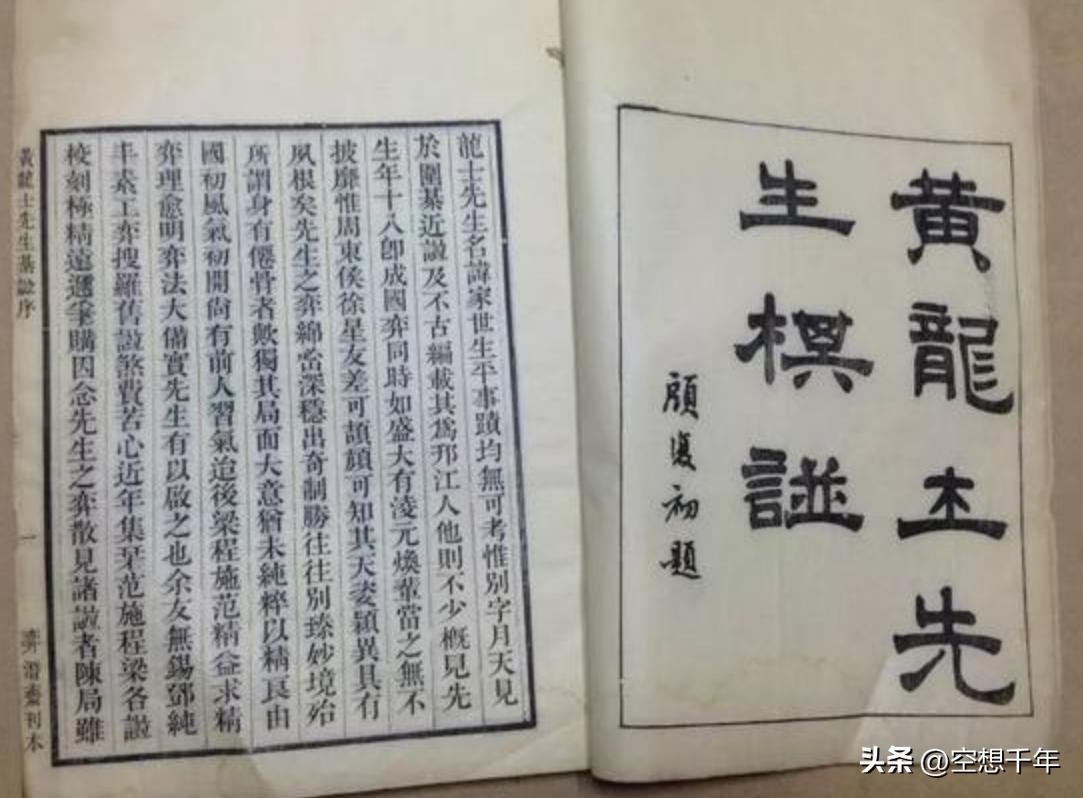 黃龍士先
生棋譜
顧復初題
龍士先生名諱家世生平事蹟均無可考惟別字月天見
於圍棊近譜及不古編載其為邗江人他則不少概見先
生年十八卽成國弈同時如盛大有淩元煥輩當之無不
披靡惟周東侯徐星友差可頡頏可知其天姿穎異具有
夙根矣先生之弈綿密深穩出奇制勝往往別臻妙境殆
所謂身有僊骨者歟獨其局面大意猶未純粹以精良由
國初風氣初開尙有前人習氣迨後梁程施范精益求精
弈理愈明弈法大備實先生有以啟之也余友無錫鄧純
丰素工弈搜羅舊譜煞費苦心近年集栞范施程梁各譜
校刻極精遠邇爭購因念先生之弈散見諸譜者陳局雖
黃龍士先生棊譜序
一
弈潛齋刊本
头条 @空想千年